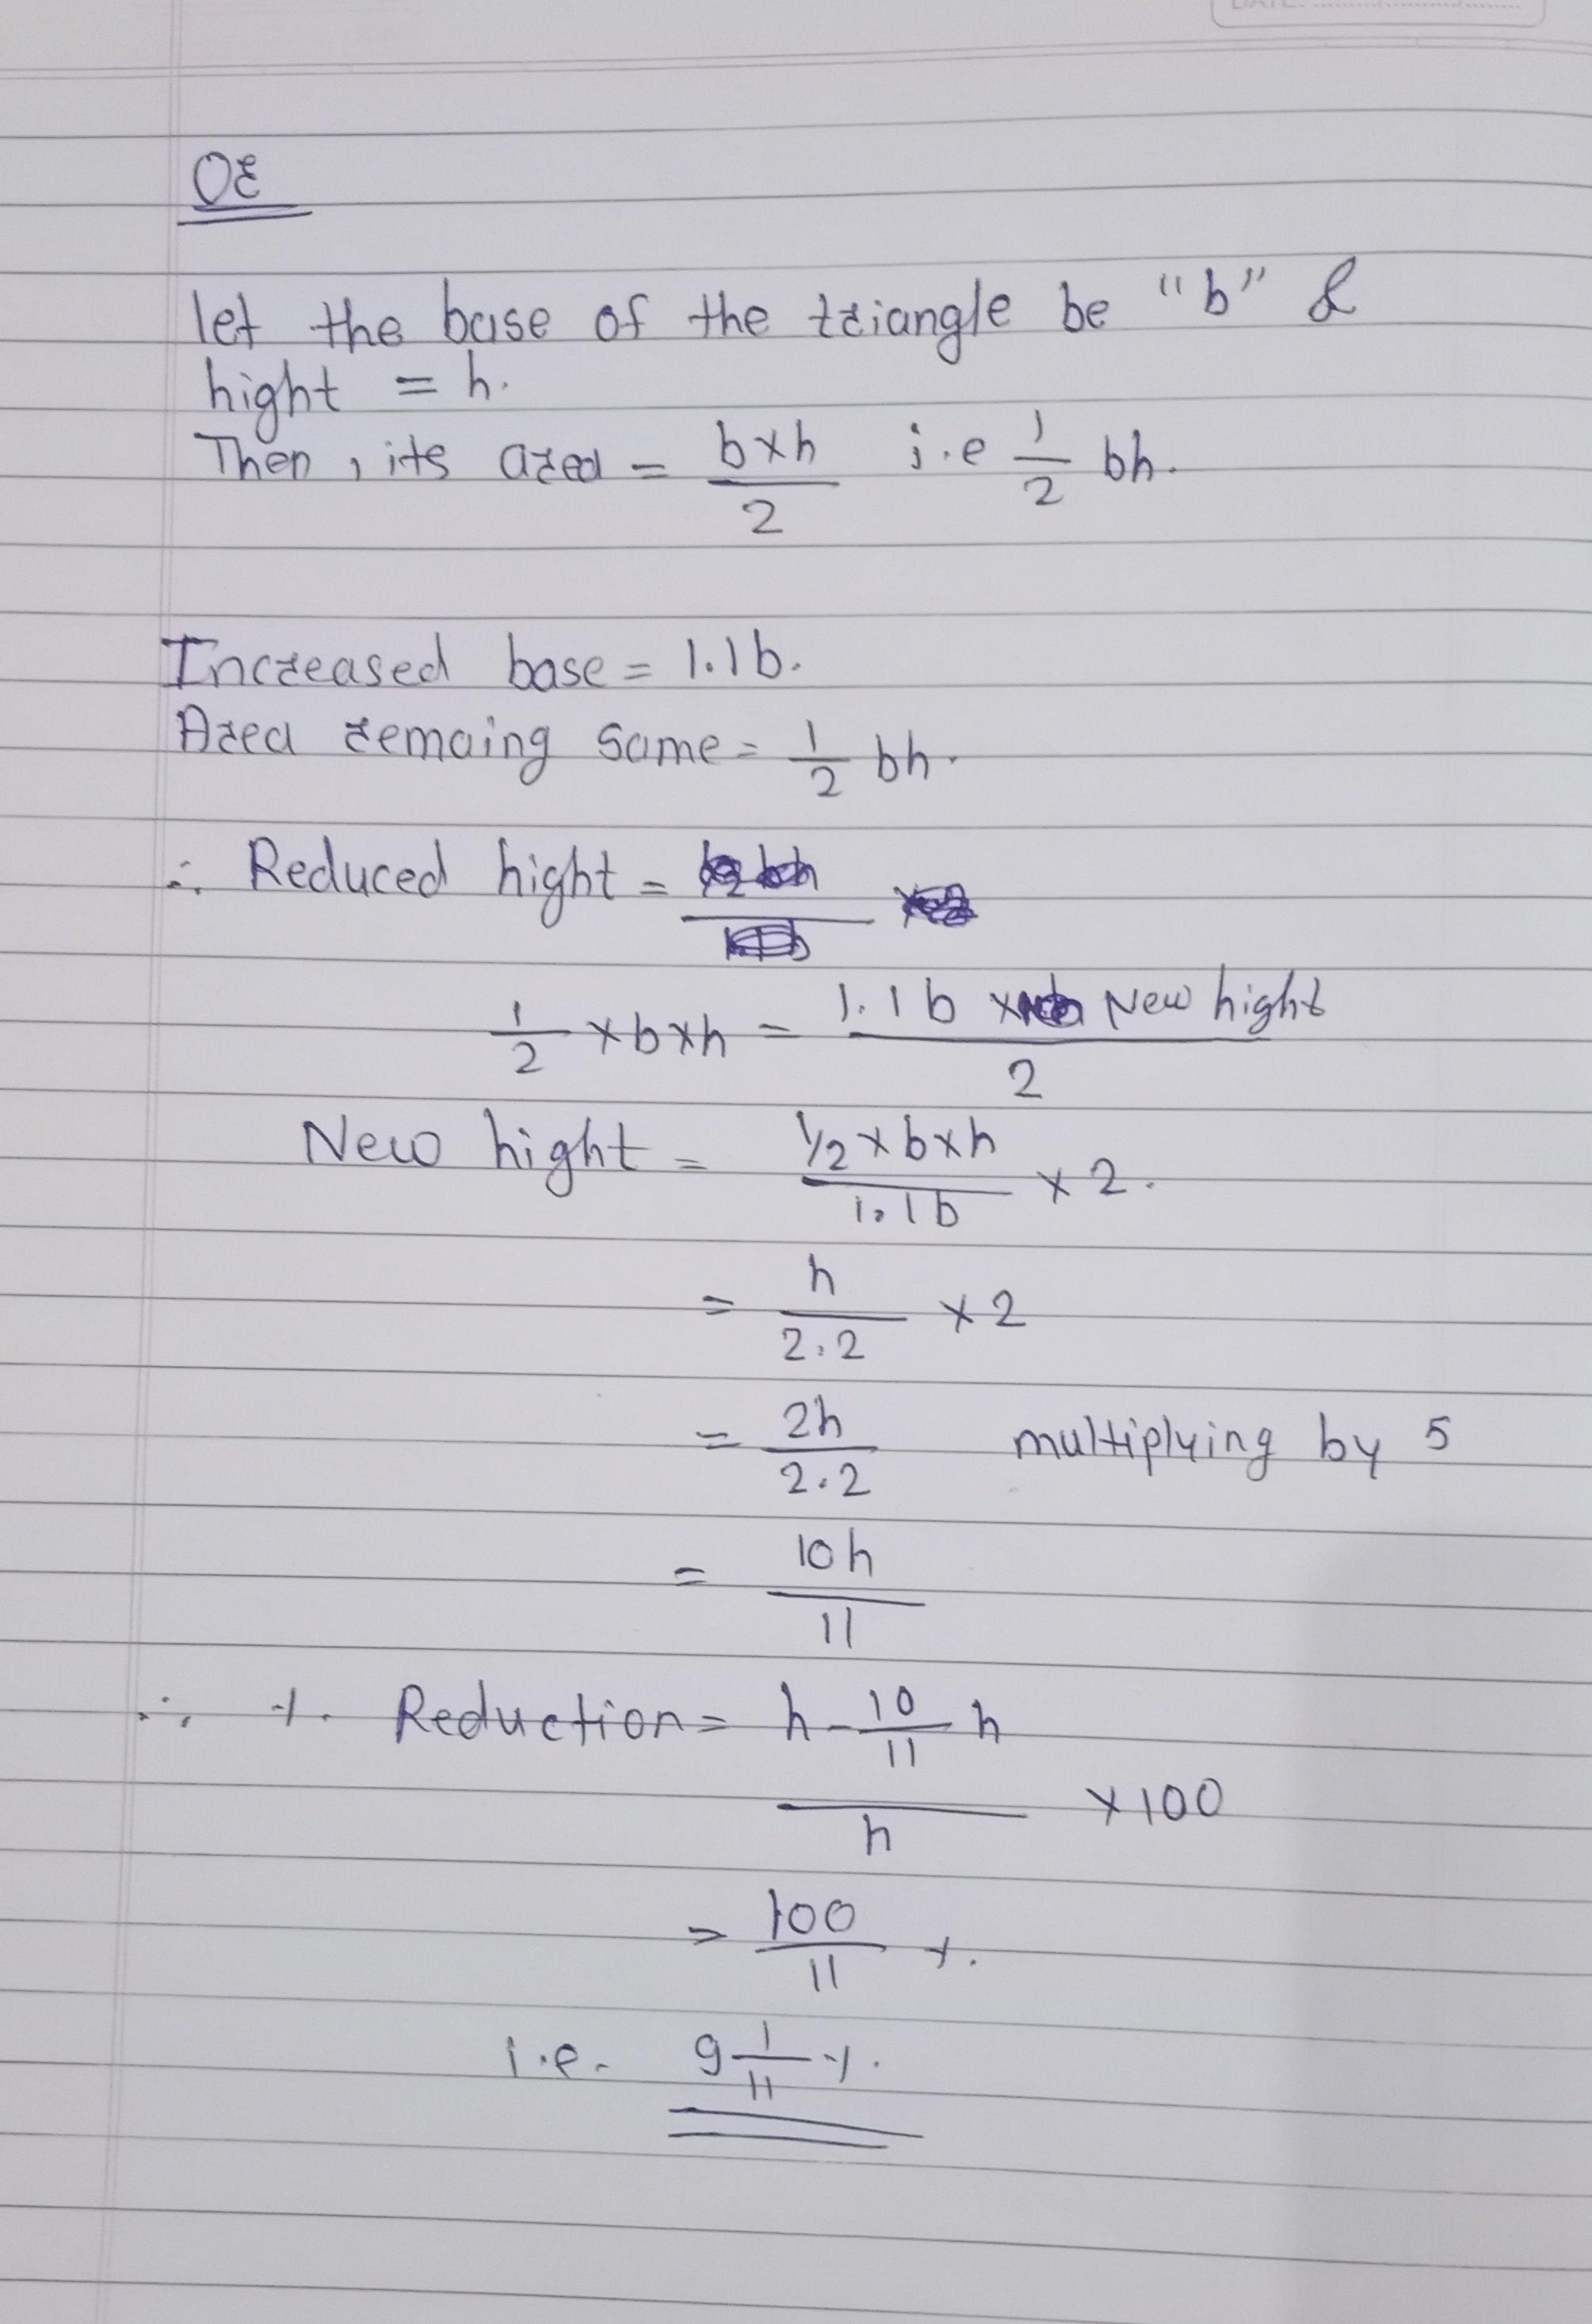 OR
let the base of the triangle be "b" &
hight = h.
Then, its area = b×h/2 i.e 1/2 bh.
Increased base = 1.1b.
Area remaing same = 1/2 bh.
∴ Reduced hight =
1/2 × b × h = 1.1b × New hight / 2
New hight = 1/2 × b × h / 1.1b × 2.
= h/2.2 × 2
= 2h/2.2 multiplying by 5
= 10h/11
∴ % Reduction = h - 10/11 h
/ h × 100
= 100/11 %.
i.e. 9 1/11 %.